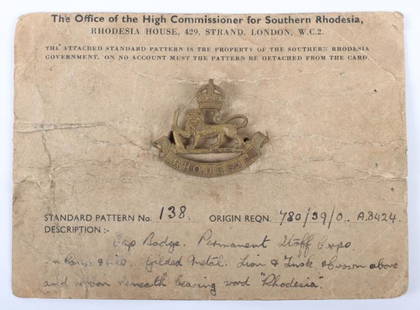 The Office of the High Commissioner for Southern Rhodesia,
RHODESIA HOUSE, 429, STRAND, LONDON, W.C.2.
THE ATTACHED STANDARD PATTERN IS THE PROPERTY OF THE SOUTHERN RHODESIA
GOVERNMENT. ON NO ACCOUNT MUST THE PATTERN BE DETACHED FROM THE CARD.
RHODESIA
STANDARD PATTERN No. 138 ORIGIN REQN. 780/39/0. A3424.
DESCRIPTION :-
Cap Badge. Permanent Staff Corps
Gilded Metal. Lion & Tusk Crown above
and ribbon beneath bearing word "Rhodesia".